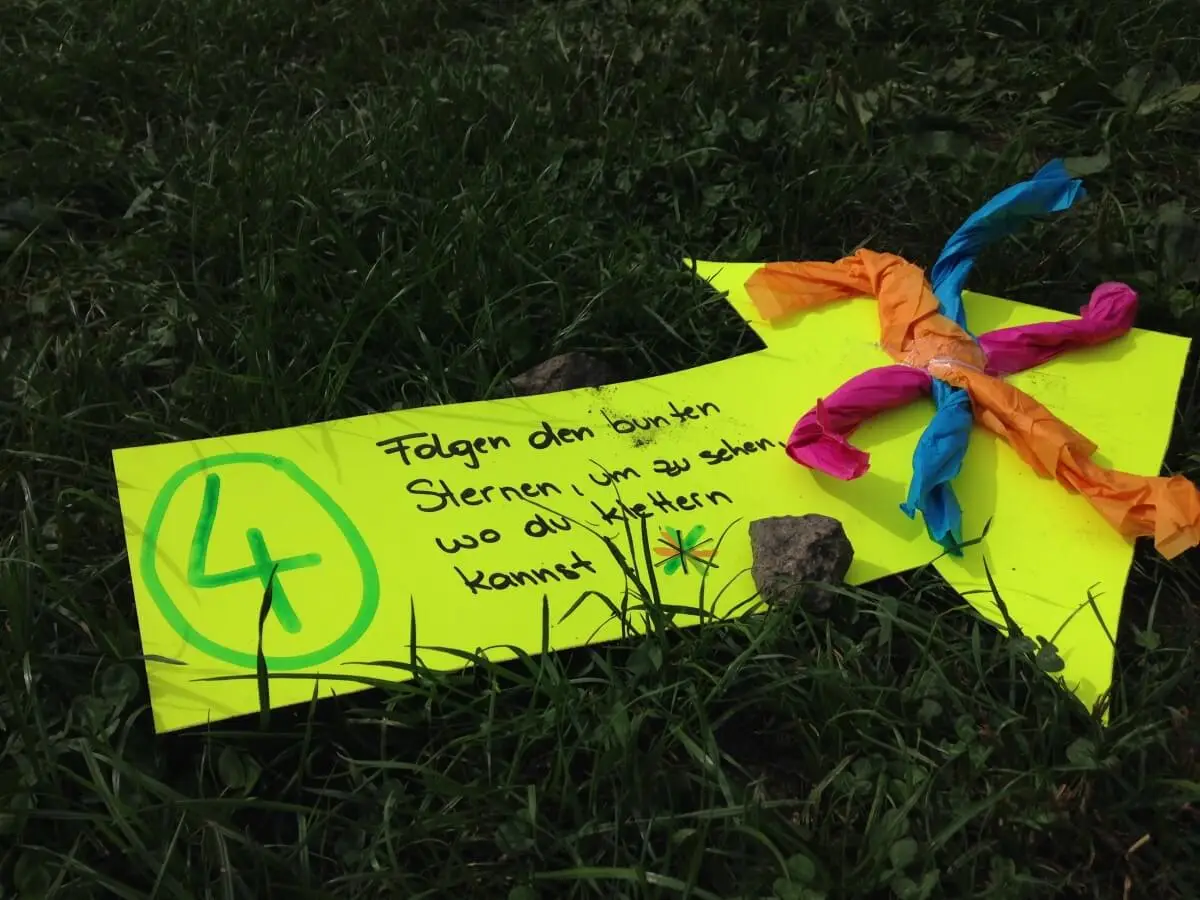 4
Folgen den bunten
Sternen, um zu sehen,
wo du klettern
kannst